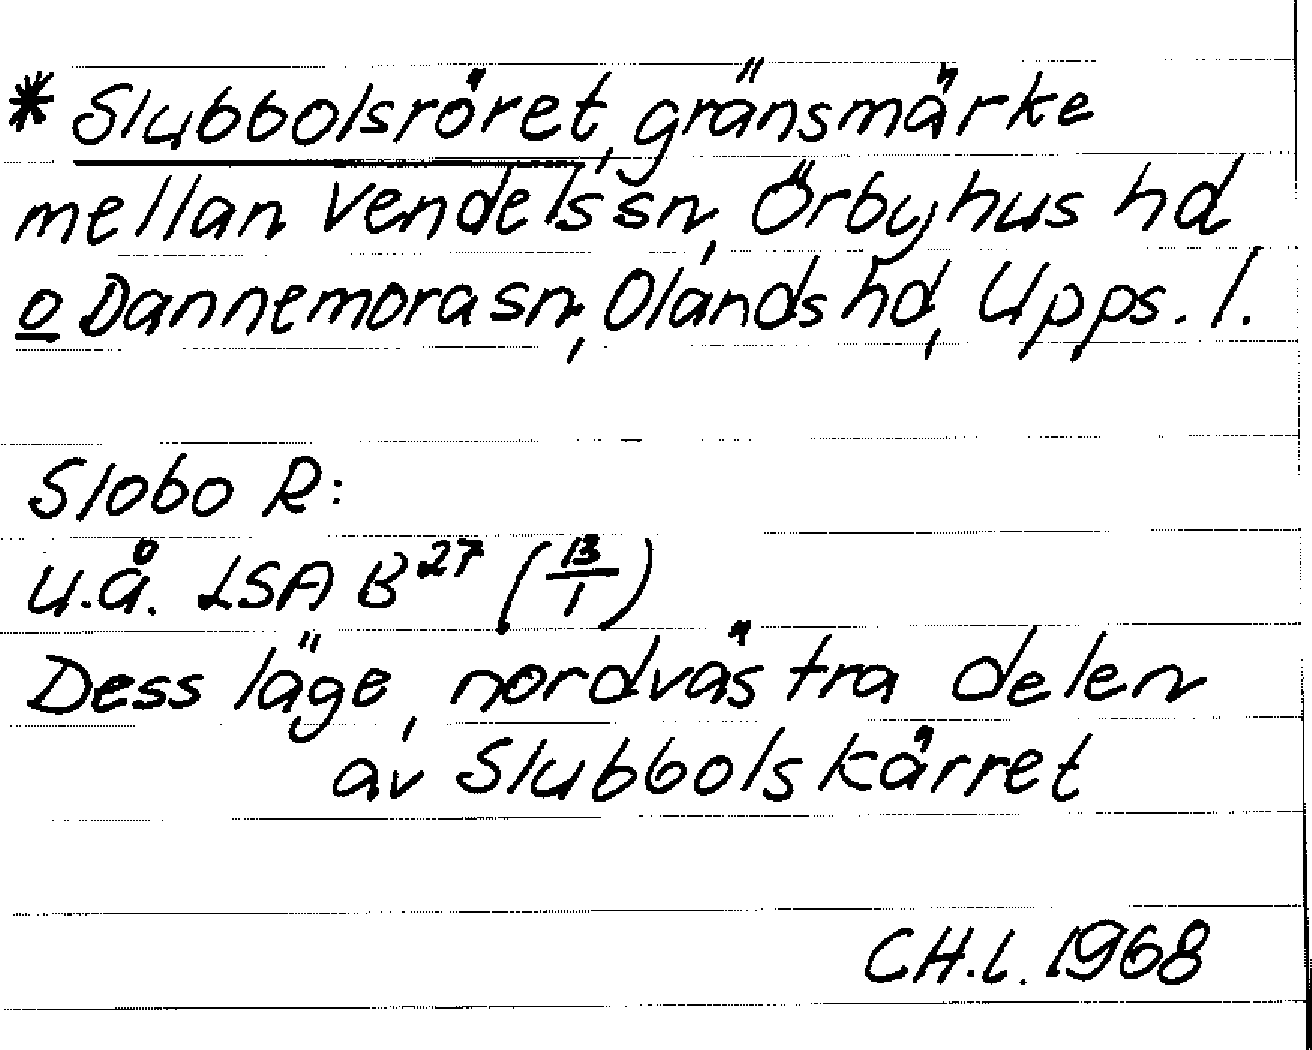 * Slubbolsröret, gränsmärke
mellan Vendels sn, Örbyhus hd
o Dannemora sn, Olands hd, Upps. l.
Slobo R:
u.å. LSA B27 (B/1)
Dess läge, nordvästra delen
av Slubbolskärret
CH.L. 1968